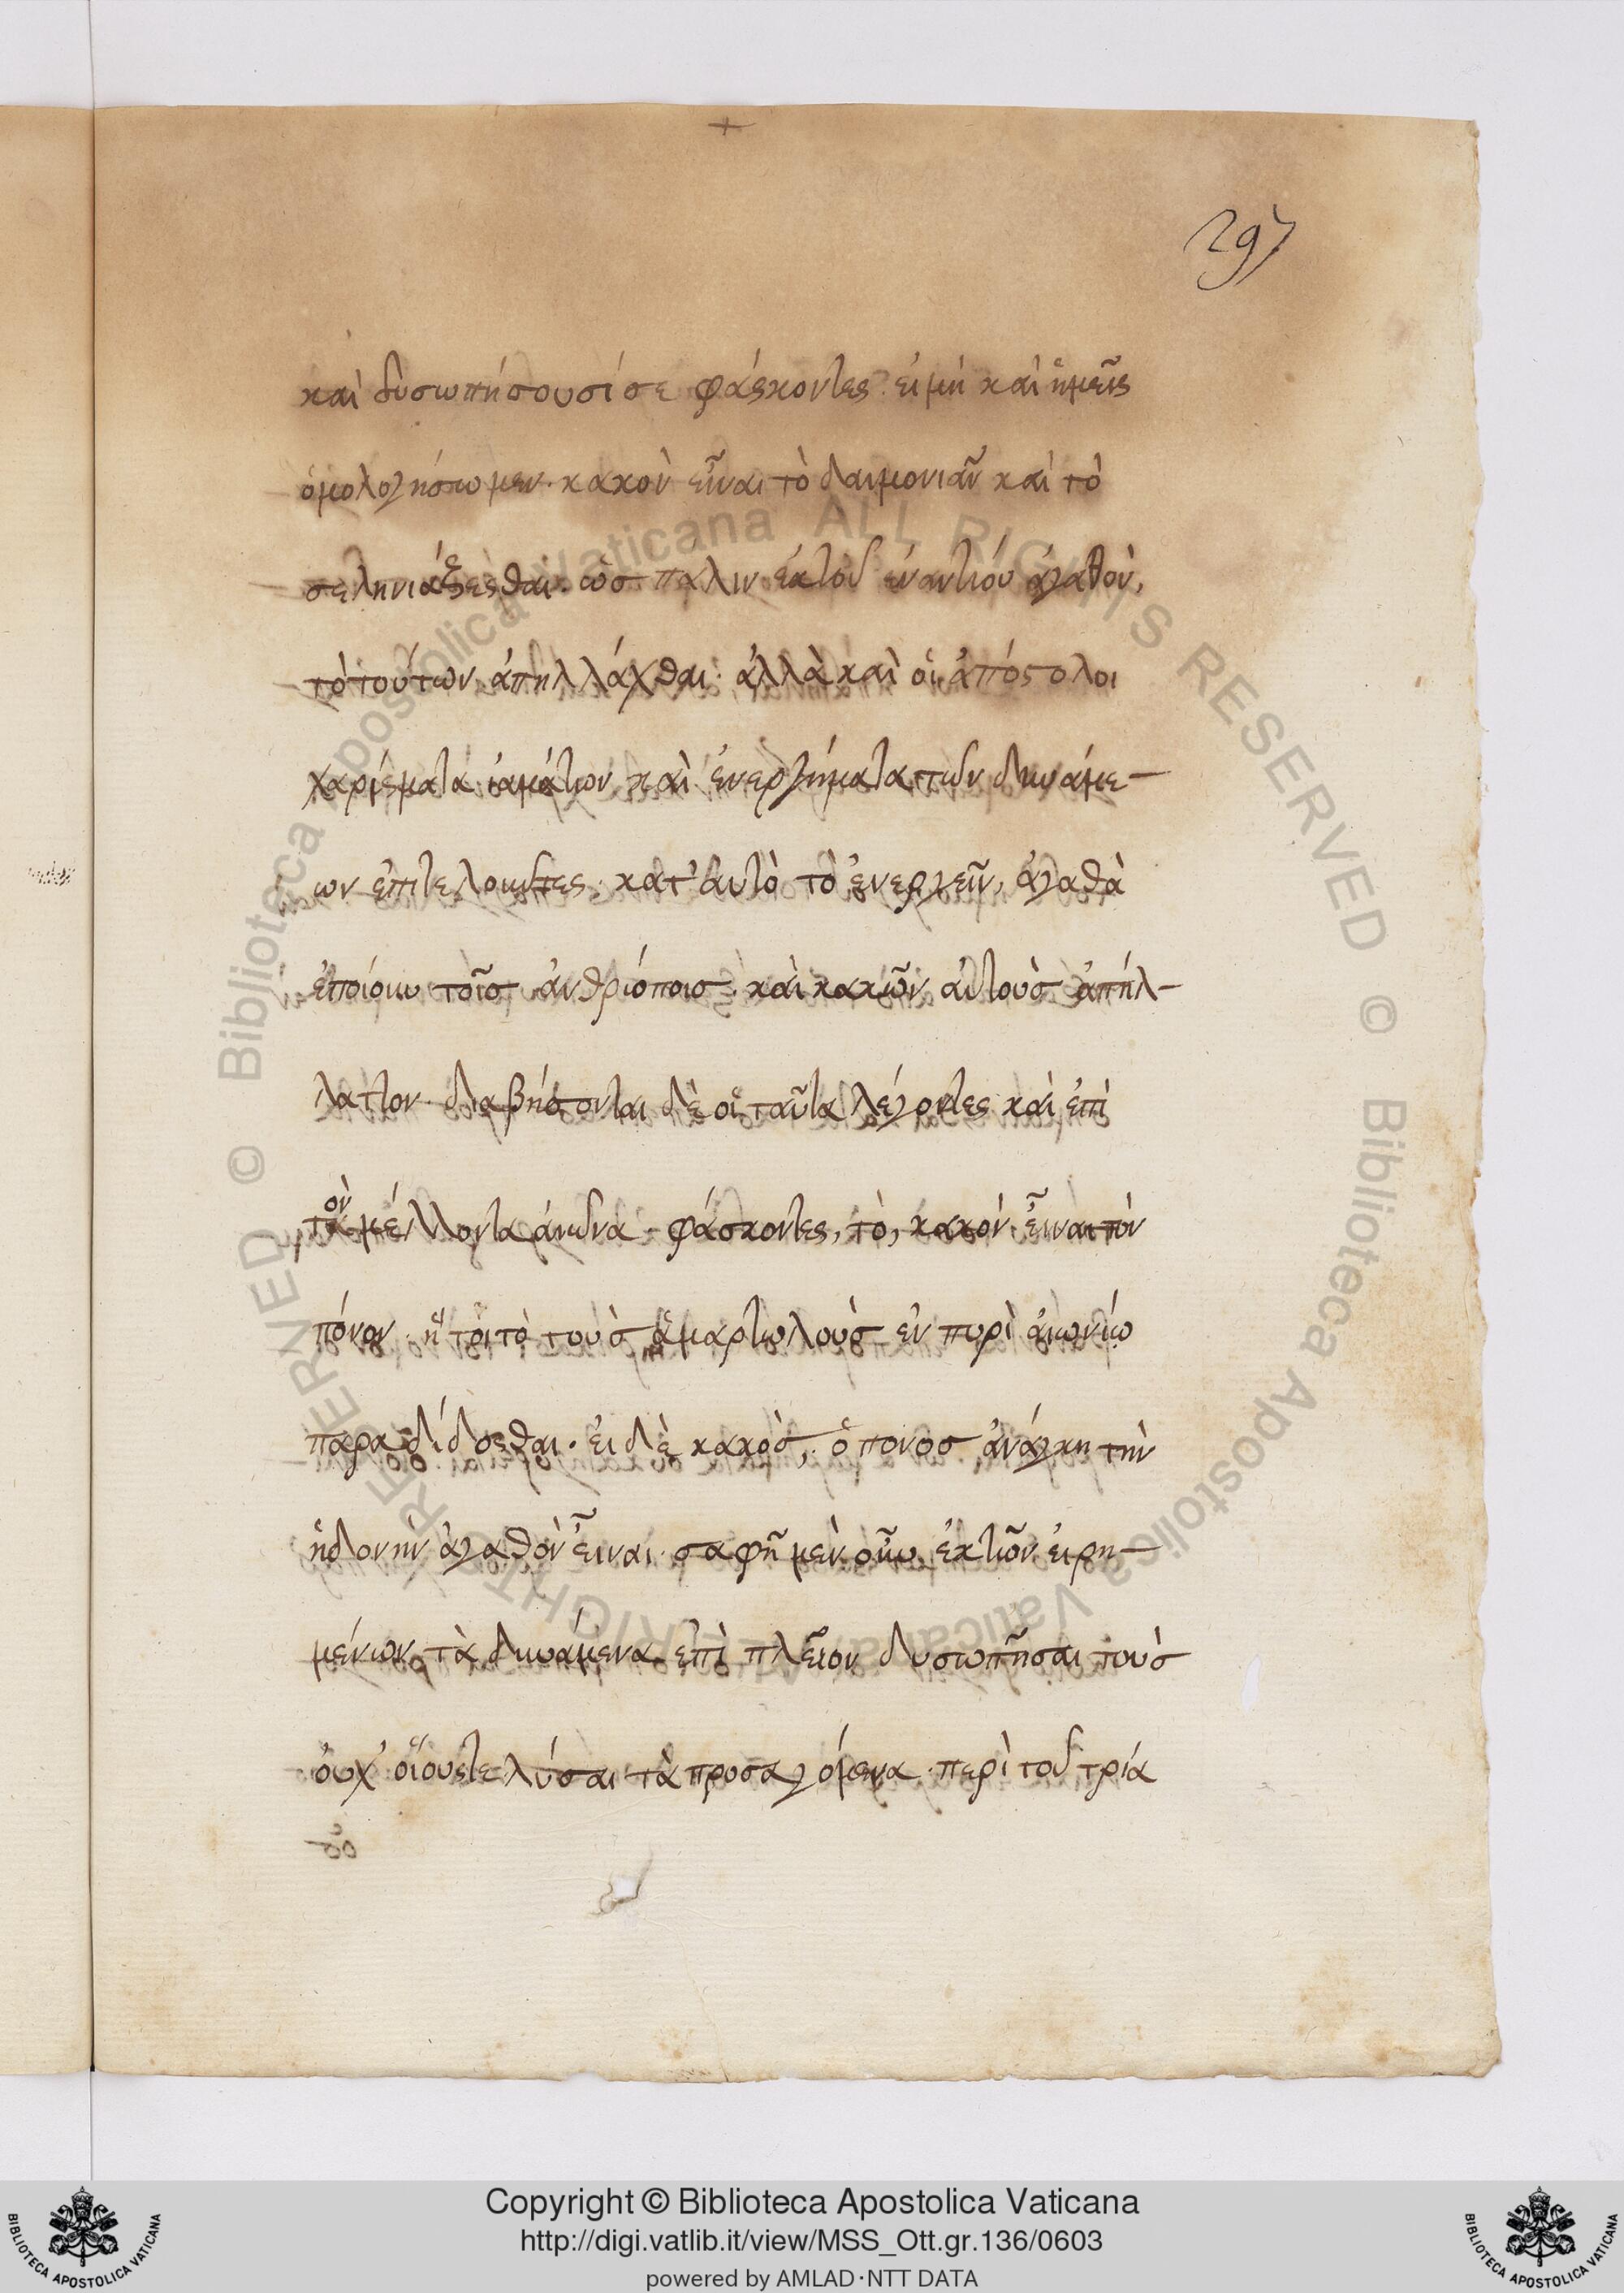 297
καὶ δυσωπήσουσί σε φάσκοντες. εἰ μὴ καὶ ἡμεῖς
ὁμολογήσωμεν. κακὸν εἶναι τὸ δαιμονιᾶν καὶ τὸ
σεληνιάζεσθαι. ὡς πάλιν ἐκ τοῦ ἐναντίου ἀγαθὸν,
τὸ τούτων ἀπηλλάχθαι. ἀλλὰ καὶ οἱ ἀπόστολοι
χαρίσματα ἰαμάτων καὶ ἐνεργήματα τῶν δυνάμε-
ων ἐπιτελοῦντες. κατ' αὐτὸ τὸ ἐνεργεῖν, ἀγαθὰ
ἐποίουν τοῖς ἀνθρώποις. καὶ κακῶν αὐτοὺς ἀπήλ-
λαττον. διαβήσονται δὲ οἱ ταῦτα λέγοντες καὶ ἐπὶ
τὸν μέλλοντα αἰῶνα φάσκοντες, τὸ, κακὸν εἶναι τὸν
πόνον. ἤτοι τὸ τοὺς ἁμαρτωλοὺς ἐν πυρὶ αἰωνίω
παραδίδοσθαι. εἰ δὲ κακὸς, ὁ πόνος ἀνάγκη τὴν
ἡδονὴν ἀγαθὸν εἶναι. σαφῆ μὲν οὖν ἐκ τῶν εἰρη-
μένων τὰ δυνάμενα ἐπὶ πλεῖον δυσωπῆσαι τοὺς
οὐχ' οἵους τε λύσαι τὰ προσαγόμενα. περὶ τοῦ τρία
Copyright © Biblioteca Apostolica Vaticana
http://digi.vatlib.it/view/MSS_Ott.gr.136/0603
powered by AMLAD·NTT DATA